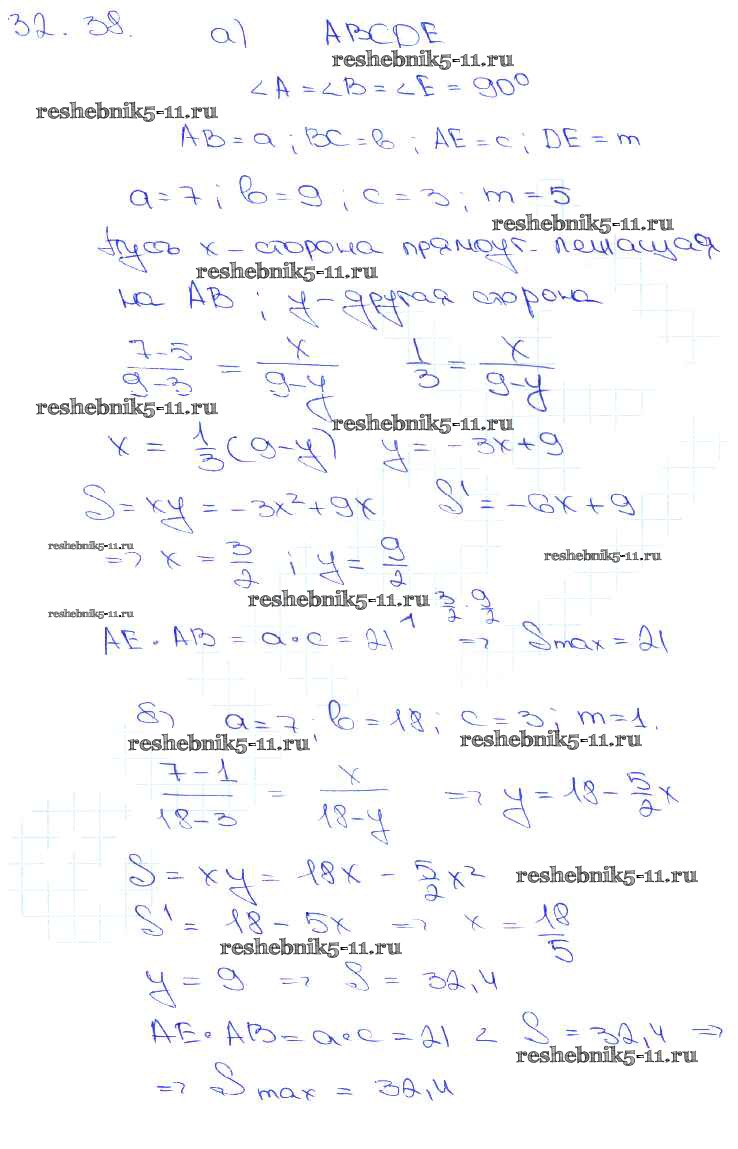 32.38. а) ABCDE
reshebnik5-11.ru
∠A = ∠B = ∠E = 90°
reshebnik5-11.ru
AB = a ; BC = b ; AE = c ; DE = m
a = 7 ; b = 9 ; c = 3 ; m = 5
reshebnik5-11.ru
Пусть x – сторона прямоуг. лежащая
reshebnik5-11.ru
на AB ; y – другая сторона
(7-5)/(9-3) = x/(9-y) 1/3 = x/(9-y)
reshebnik5-11.ru reshebnik5-11.ru
x = 1/3 (9-y) y = -3x+9
S = xy = -3x² + 9x S' = -6x + 9
reshebnik5-11.ru reshebnik5-11.ru
=> x = 3/2 ; y = 9/2
reshebnik5-11.ru
reshebnik5-11.ru
AE · AB = a · c = 21 > 3/2 · 9/2 => Smax = 21
б) a = 7 ; b = 18 ; c = 3 ; m = 1.
reshebnik5-11.ru reshebnik5-11.ru
(7-1)/(18-3) = x/(18-y) => y = 18 - 5/2 x
S = xy = 18x - 5/2 x² reshebnik5-11.ru
S' = 18 - 5x => x = 18/5
reshebnik5-11.ru
y = 9 => S = 32,4
AE · AB = a · c = 21 < S = 32,4 =>
reshebnik5-11.ru
=> Smax = 32,4